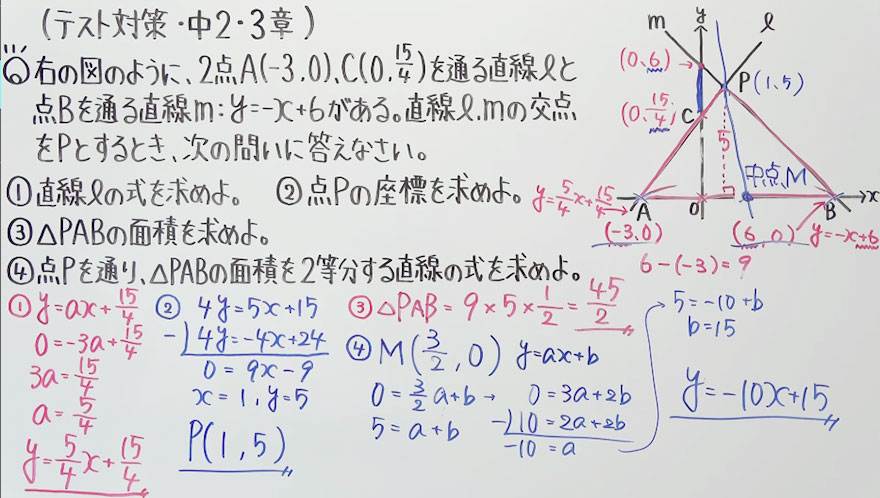 (テスト対策・中2・3章)
⑥右の図のように、2点A(-3,0)、C(0,15/4)を通る直線ℓと
点Bを通る直線m:y=-x+6がある。直線ℓ,mの交点
をPとするとき、次の問いに答えなさい。
①直線ℓの式を求めよ。 ②点Pの座標を求めよ。
③△PABの面積を求めよ。
④点Pを通り、△PABの面積を2等分する直線の式を求めよ。
m
y
ℓ
(0,6)→
P(1,5)
(0,15/4)
C
5
中点M
y=5/4x+15/4→
A
O
B
x
(-3,0)
(6,0)
y=-x+6
6-(-3)=9
① y=ax+15/4
0=-3a+15/4
3a=15/4
a=5/4
y=5/4x+15/4
② 4y=5x+15
-)4y=-4x+24
0=9x-9
x=1,y=5
P(1,5)
③ △PAB=9×5×1/2=45/2
④ M(3/2,0) y=ax+b
0=3/2a+b → 0=3a+2b
5=a+b -)10=2a+2b
-10=a
5=-10+b
b=15
y=-10x+15